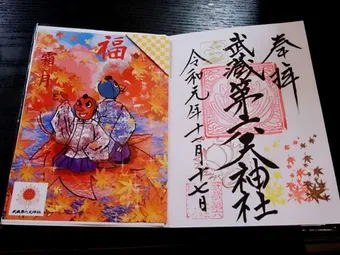 福
霜月
武蔵第六天神社
奉拝
武蔵第六天神社
令和元年十一月十七日